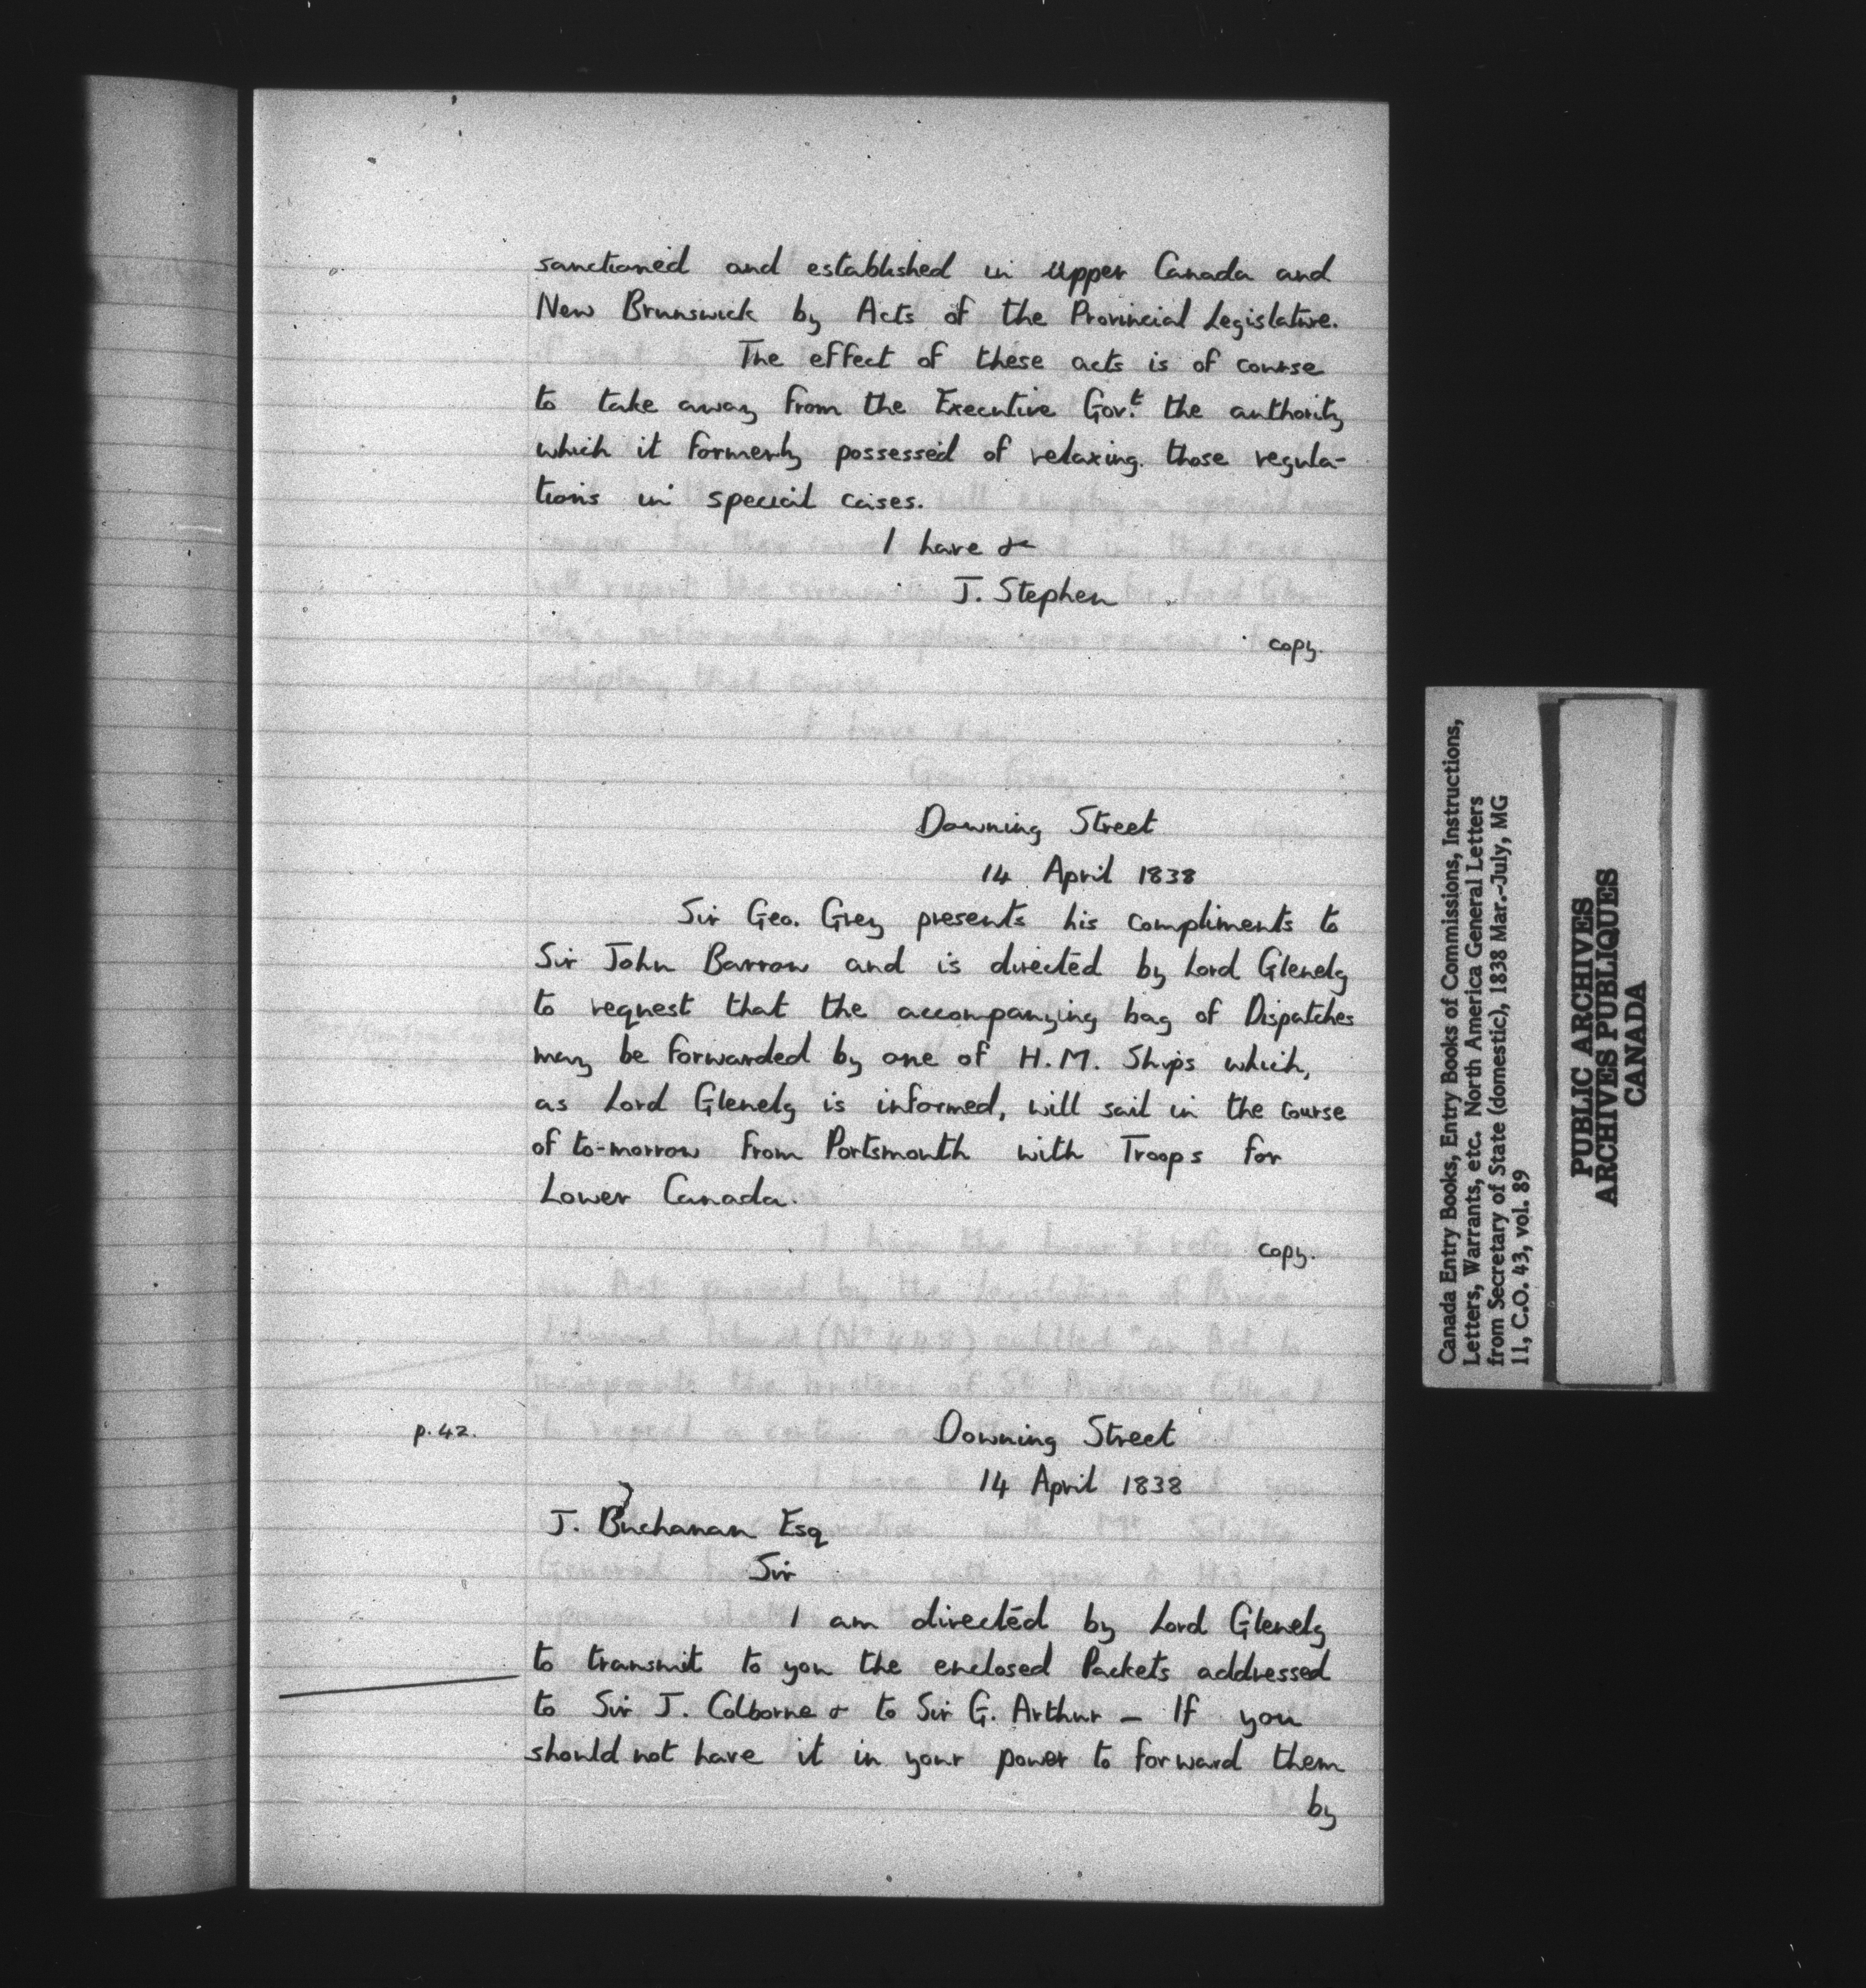 sanctioned and established in Upper Canada and
New Brunswick by Acts of the Provincial Legislature.
The effect of these acts is of course
to take away from the Executive Gov.t the authority
which it formerly possessed of relaxing those regula-
tions in special cases.
I have &
J. Stephen
copy.
Downing Street
14 April 1838
Sir Geo. Grey presents his compliments to
Sir John Barrow and is directed by Lord Glenelg
to request that the accompanying bag of Dispatches
may be forwarded by one of H.M. Ships which,
as Lord Glenelg is informed, will sail in the course
of to-morrow from Portsmouth with Troops for
Lower Canada.
copy.
p. 42.
Downing Street
14 April 1838
J. Buchanan Esq
Sir
I am directed by Lord Glenelg
to transmit to you the enclosed Packets addressed
to Sir J. Colborne & to Sir G. Arthur – If you
should not have it in your power to forward them
by
Canada Entry Books, Entry Books of Commissions, Instructions,
Letters, Warrants, etc. North America General Letters
from Secretary of State (domestic), 1838 Mar.-July, MG
11, C.O. 43, vol. 89
PUBLIC ARCHIVES
ARCHIVES PUBLIQUES
CANADA